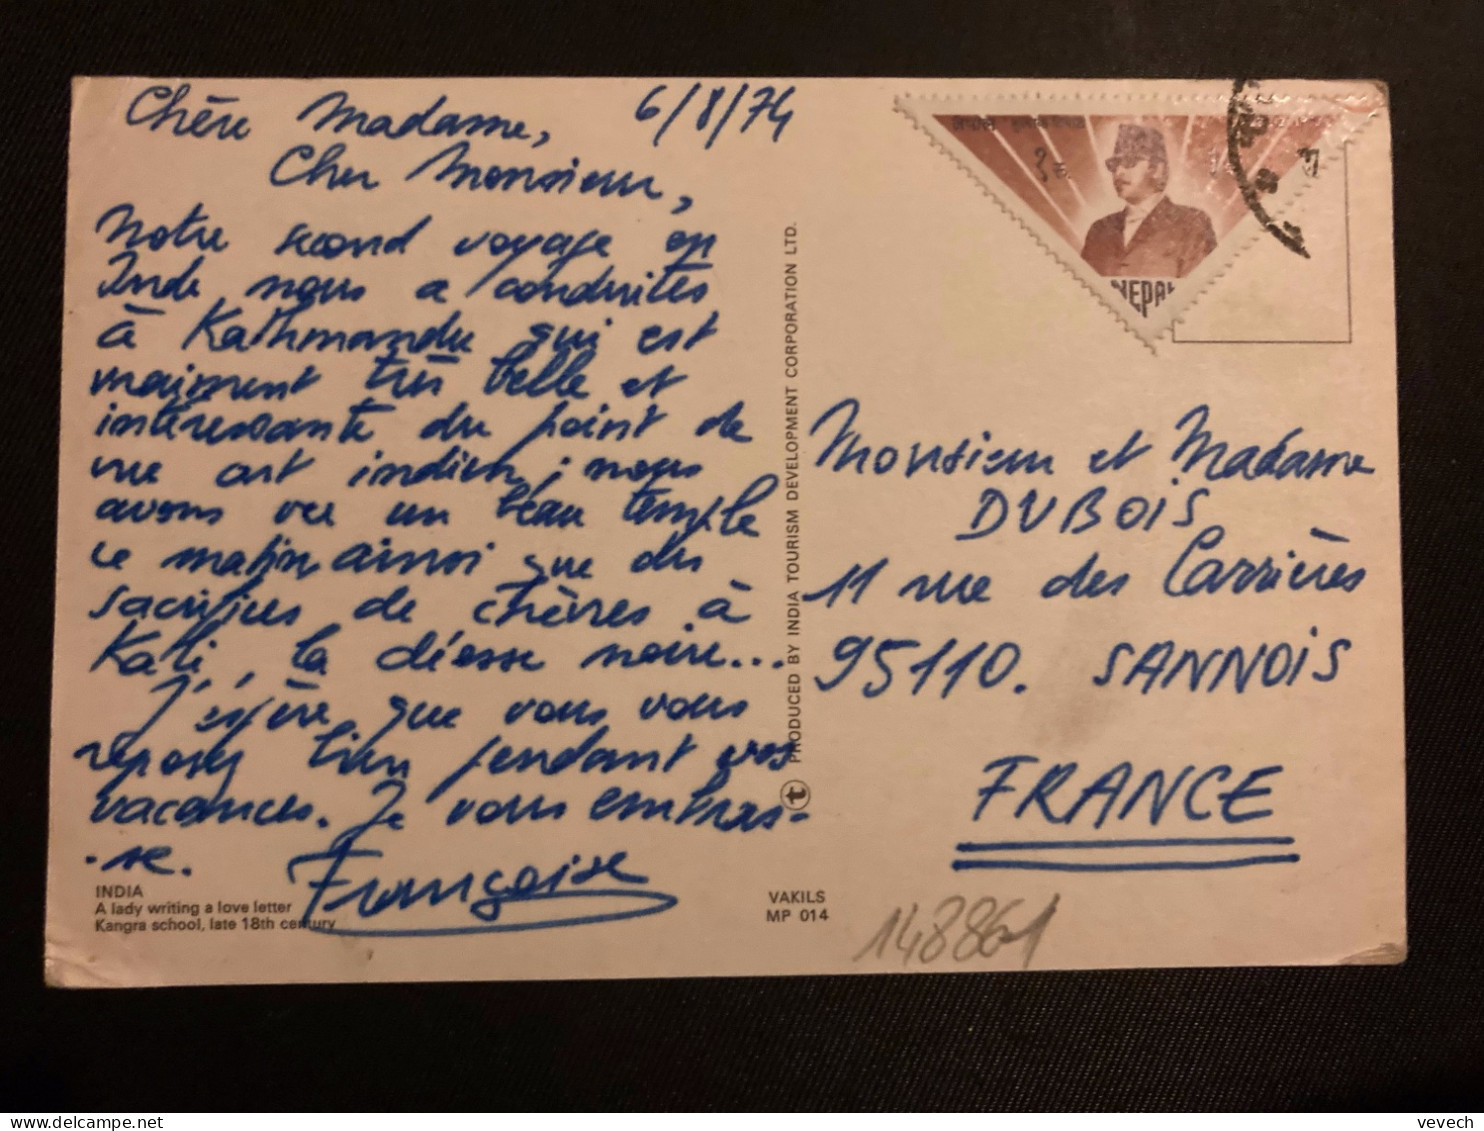 6/8/74
Chère Madame,
Cher Monsieur,
Notre second voyage en
Inde nous a conduites
à Kathmandu qui est
vraiment très belle et
intéressante du point de
vue art indien ; nous
avons vu un beau temple
ce matin ainsi que des
sacrifices de chèvres à
Kali, la déesse noire...
J'espère que vous vous
reposez bien pendant vos
vacances. Je vous embras-
-se.
Françoise
INDIA
A lady writing a love letter
Kangra school, late 18th century
VAKILS
MP 014
PRODUCED BY INDIA TOURISM DEVELOPMENT CORPORATION LTD.
NEPAL
Monsieur et Madame
DUBOIS
11 rue des Carrières
95110. SANNOIS
FRANCE
148861
vevech